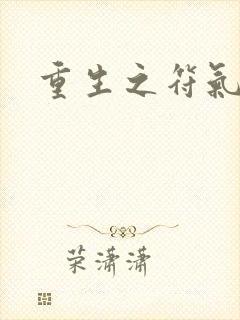 重生之符氣
荣潇潇